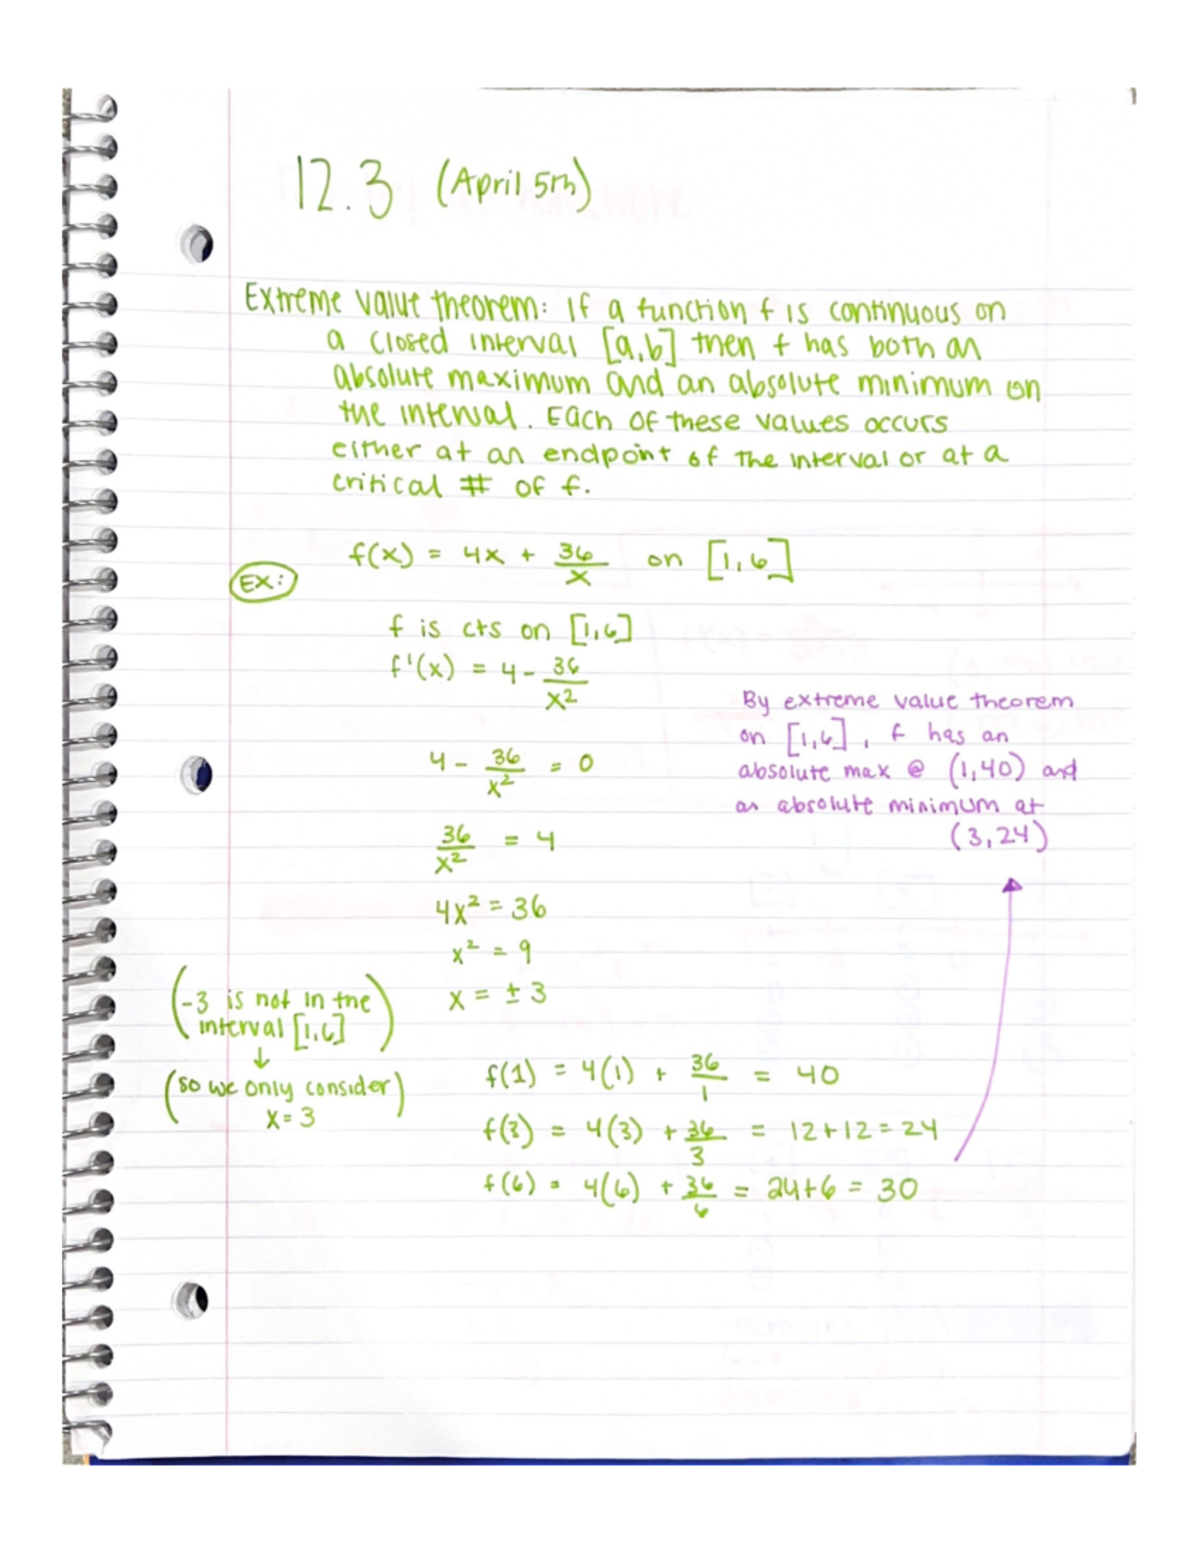 12.3 (April 5th)
Extreme value theorem: If a function f is continuous on
a closed interval [a,b] then f has both an
absolute maximum and an absolute minimum on
the interval. Each of these values occurs
either at an endpoint of the interval or at a
critical # of f.
EX: f(x) = 4x + 36/x on [1,6]
f is cts on [1,6]
f'(x) = 4 - 36/x²
4 - 36/x² = 0
36/x² = 4
4x² = 36
x² = 9
x = ± 3
(-3 is not in the
interval [1,6])
↓
(so we only consider)
x = 3
f(1) = 4(1) + 36/1 = 40
f(3) = 4(3) + 36/3 = 12+12 = 24
f(6) = 4(6) + 36/6 = 24+6 = 30
By extreme value theorem
on [1,6], f has an
absolute max @ (1,40) and
an absolute minimum at
(3,24)